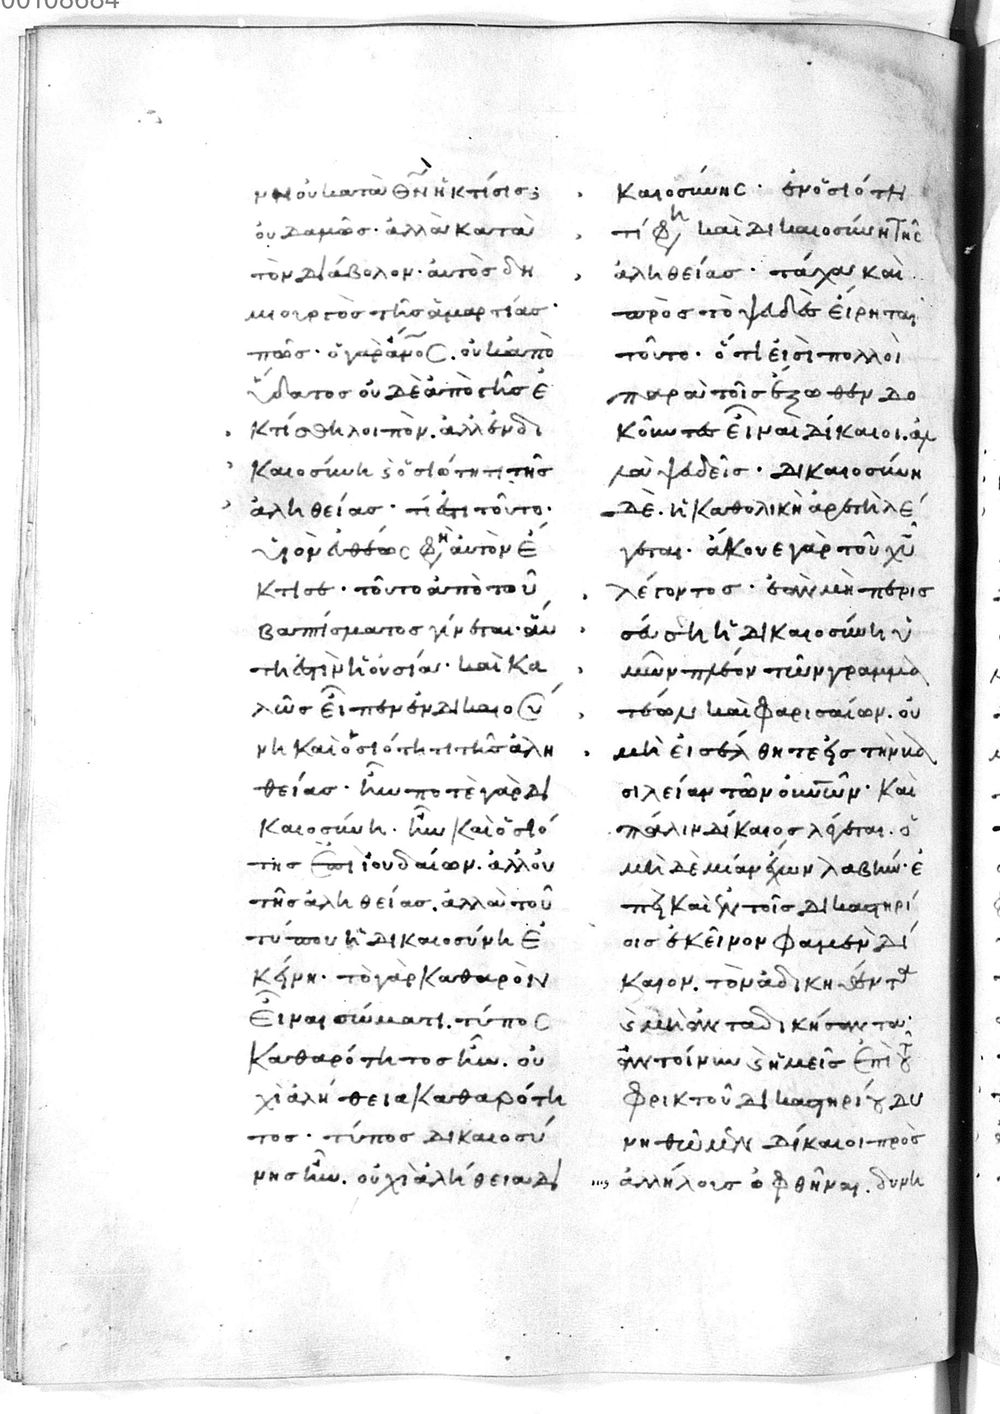 00108684
μη οὐ κατὰ θν̅ ἡ κτίσις;
οὐδαμῶς· ἀλλὰ κατὰ
τὸν διάβολον· αὐτὸς δη
μιουργὸς τῆς ἁμαρτίας·
πῶς· ὁ γὰρ ἄνο̅ς. οὐκ ἀπὸ
ὕδατος οὐδὲ ἀπὸ γῆς ἐ
κτίσθη λοιπὸν. ἀλλ ἐν δι
καιοσύνη ϗ ὁσιότητι τῆς
ἀληθείας· τί ἐστι τοῦτο·
υἱὸν ὁ θεός φη αὐτὸν ἔ
κτισε· τοῦτο ἀπὸ τοῦ
βαπτίσματος γίνεται· αὕ
τη ἐστὶν ἡ οὐσία· καὶ κα
λῶς εἶπεν ἐν δικαιοσύ
νη καὶ ὁσιότητι τῆς ἀλη
θείας· ἦν ποτὲ γὰρ δι
καιοσύνη· ἦν καὶ ὁσιό
της ἐπὶ ἰουδαίων. ἀλλ οὐ
τῆς ἀληθείας. ἀλλὰ τοῦ
τύπου ἡ δικαιοσύνη ἐ
κείνη· τὸ γὰρ καθαρὸν
εἶναι σώματι. τύπος
καθαρότητος ἦν. οὐ
χὶ ἀλήθεια καθαρότη
τος· τύπος δικαιοσύ
νης ἦν. οὐχὶ ἀλήθεια δι
καιοσύνης· ἐν ὁσιότη
τί φη καὶ δικαιοσύνη τῆς
ἀληθείας· τάχα καὶ
πρὸς τὸ ψεῦδος εἴρηται
τοῦτο· ὅτι εἰσὶ πολλοὶ
παρὰ τοῖς ἔξωθεν δο
κοῦντες εἶναι δίκαιοι. ἀλ
λὰ ψευδεῖς· δικαιοσύνη
δὲ. ἡ καθολικὴ ἀρετὴ λέ
γεται· ἄκουε γὰρ τοῦ χῦ
λέγοντος· ἐὰν μὴ περισ
σεύση ἡ δικαιοσύνη ὑ
μῶν πλέον τῶν γραμμα
τέων καὶ φαρισαίων. οὐ
μὴ εἰσέλθητε εἰς τὴν βα
σιλείαν τῶν οὐνῶν· καὶ
πάλιν δίκαιος λέγεται. ὁ
μὴ δεμίαν ἔχων λαβήν· ἐ
πεὶ καὶ ἐν τοῖς δικαστηρί
οις ἐκεῖνον φαμὲν δί
καιον. τὸν ἀδικηθέντα
ϗ μὴ ἀνταδικήσαντα·
ἂν τοίνυν ϗ ἡμεῖς ἐπὶ τοῦ
φρικτοῦ δικαστηρίου δυ
νηθῶμεν δίκαιοι πρὸς
ἀλλήλους ὀφθῆναι. δυνη